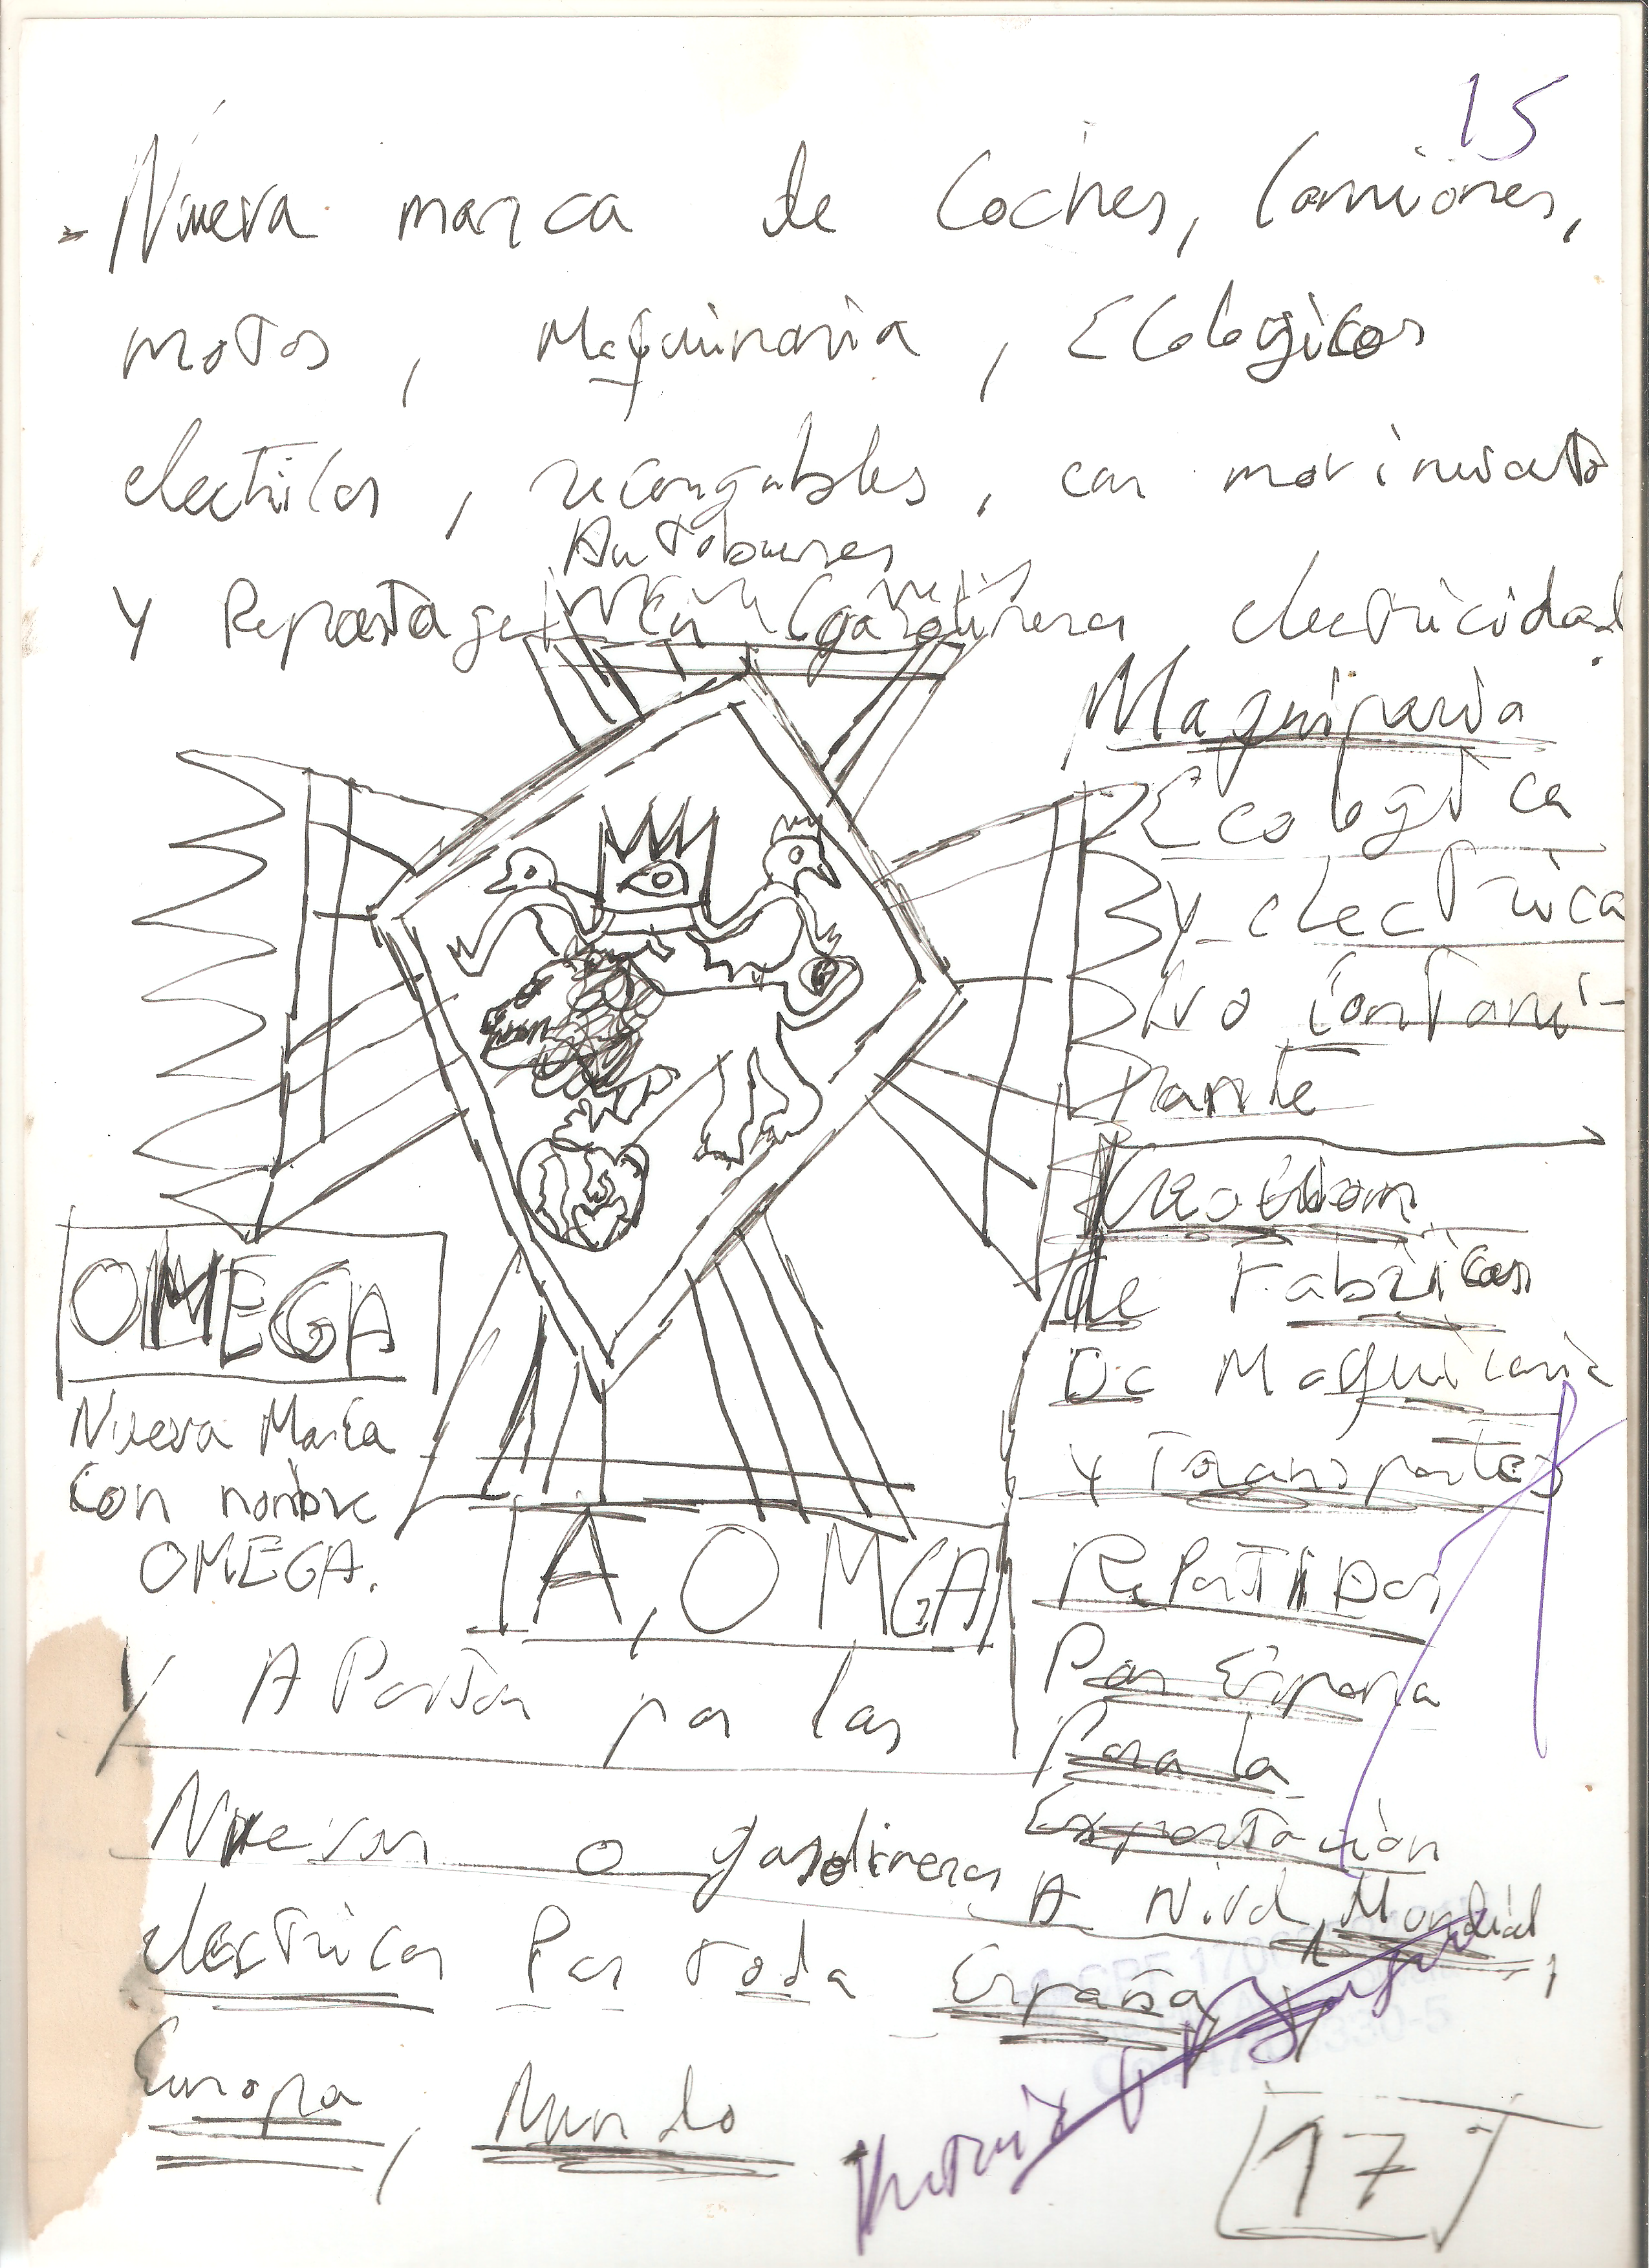 15
- Nueva marca de Coches, Camiones,
motos, Maquinaria, Ecologicos
electricos, recargables, con movimiento
Autobuses
Y Repostage en Gasolineras electricidad
Maquinaria
Ecologica
Y electrica
No contami-
nante
Creación
de Fabricas
De Maquinaria
y Transportes
RePartiDas
Por España
Para la
Exportación
A Nivel Mundial,
OMEGA
Nueva Marca
Con nombre
OMEGA.
A, OMGA
Y APostar por las
Nuevas o gasolineras
electricas Por toda España,
Europa, Mundo
17